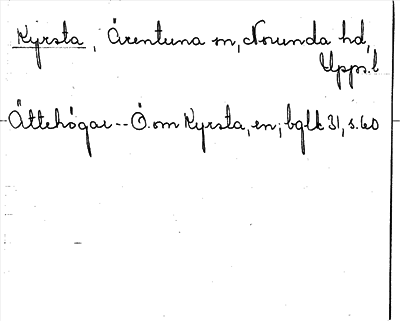 Kyrsta, Ärentuna sn, Norunda hd,
Upps. l
Ättehögar -- Ö. om Kyrsta, en; bglk 31, s. 60